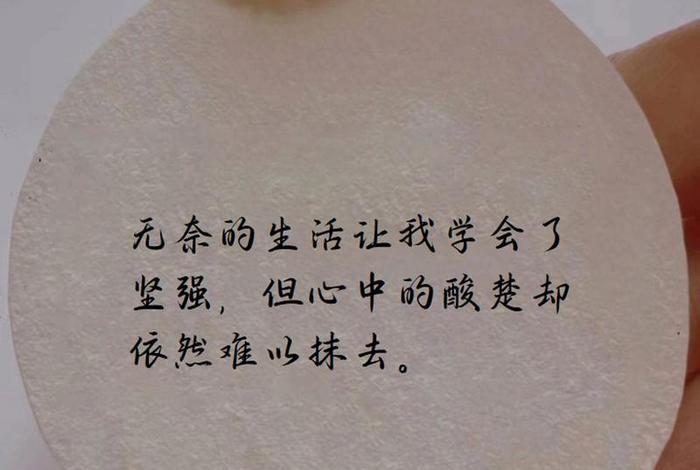 无奈的生活让我学会了
坚强，但心中的酸楚却
依然难以抹去。